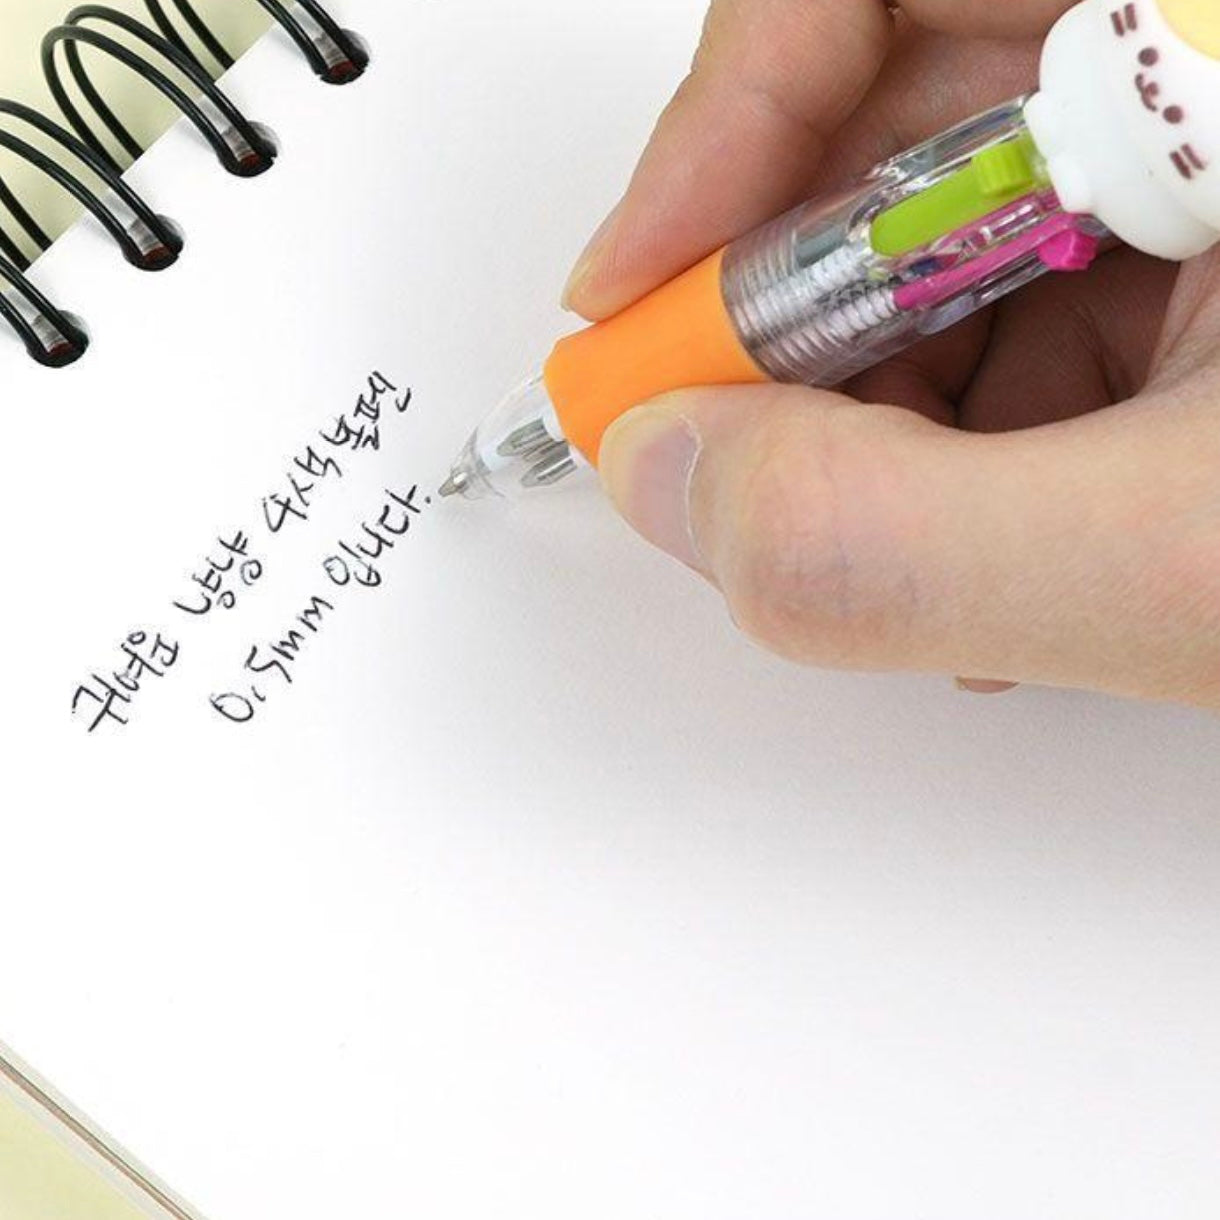 귀여운 냥냥 4색볼펜
0.5mm 입니다.